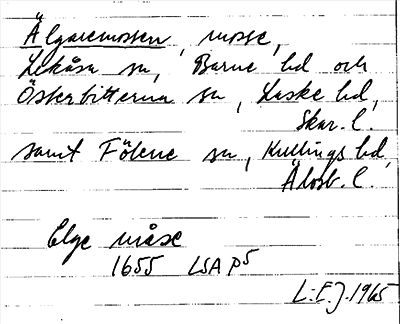 Älgaremossen, mosse,
Lekåsa sn, Barne hd och
Österbitterna sn, Laske hd,
Skar. l.
samt Fölene sn, Kullings hd,
Älvsb. l.
Elge måse
1655 LSA P5
L:E.J. 1965